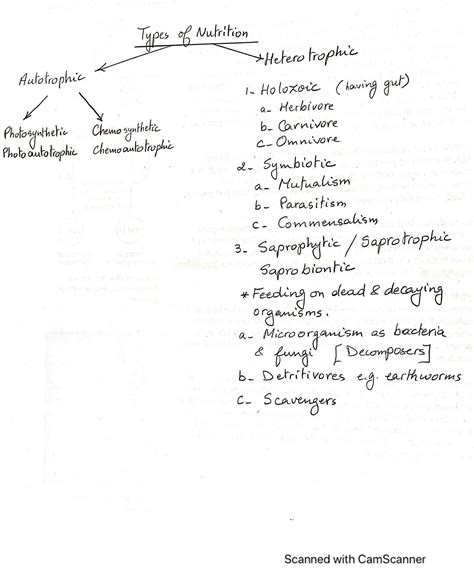 Types of Nutrition
Autotrophic
Photosynthetic
Photoautotrophic
Chemosynthetic
Chemoautotrophic
Heterotrophic
1- Holozoic (having gut)
a- Herbivore
b- Carnivore
c- Omnivore
2- Symbiotic
a- Mutualism
b- Parasitism
c- Commensalism
3- Saprophytic / Saprotrophic
Saprobiontic
* Feeding on dead & decaying
organisms.
a- Microorganism as bacteria
& fungi [Decomposers]
b- Detritivores e.g. earthworms
c- Scavengers
Scanned with CamScanner